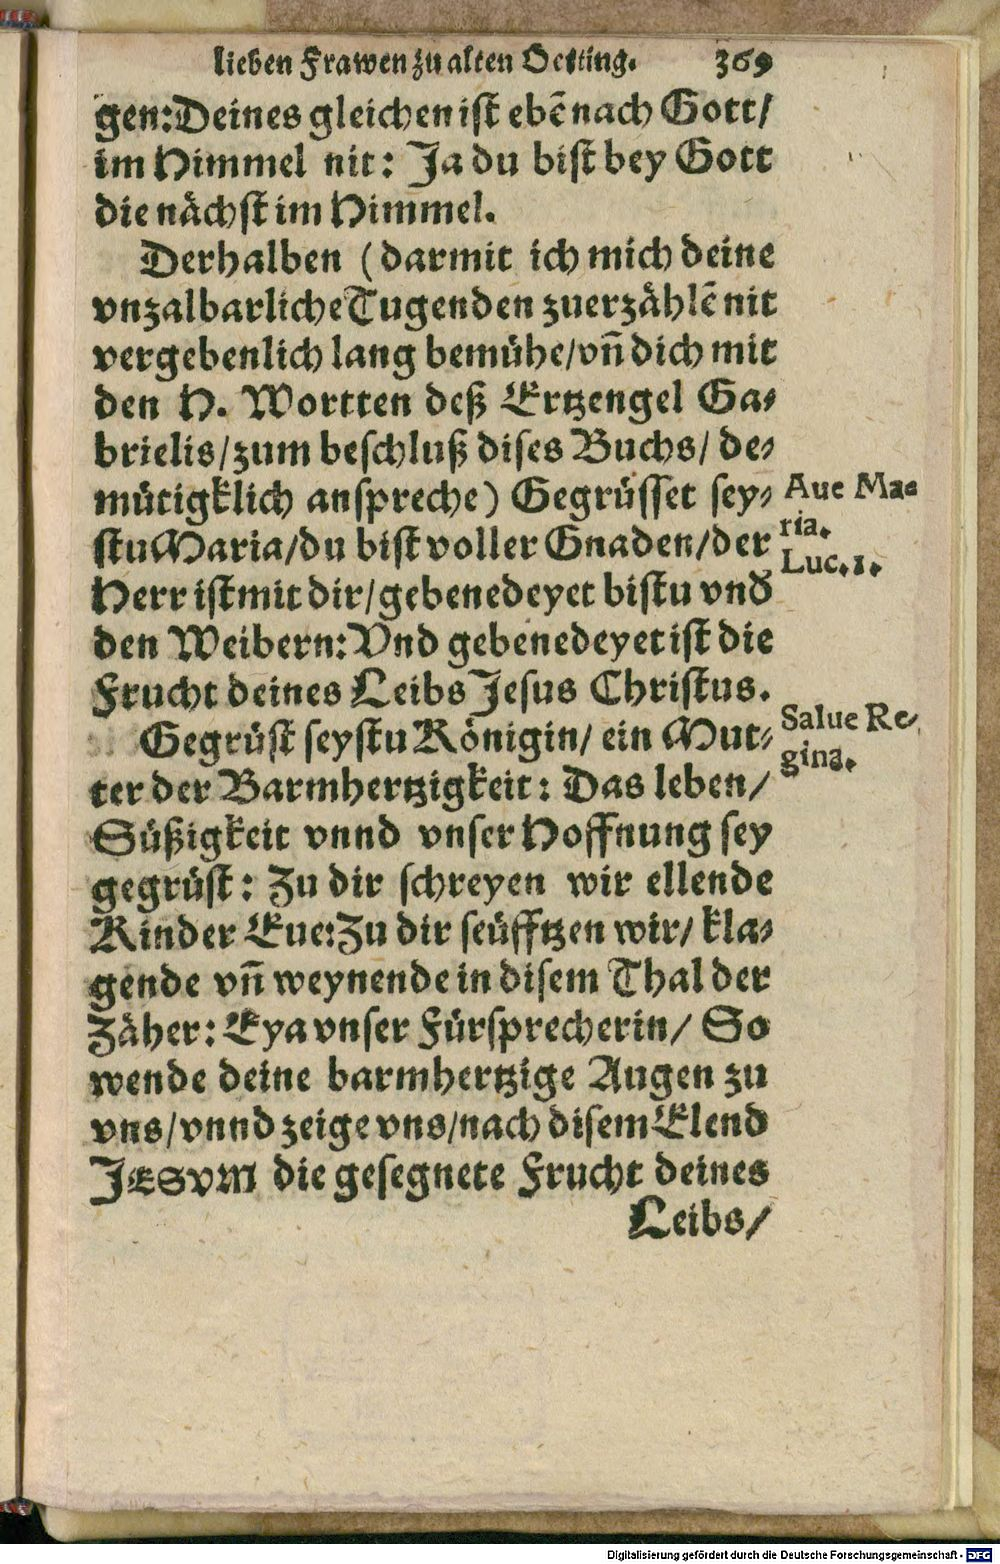 lieben Frawen zu alten Oetting. 369
gen: Deines gleichen ist ebē nach Gott/
im Himmel nit: Ja du bist bey Gott
die nächst im Himmel.
Derhalben (darmit ich mich deine
vnzalbarliche Tugenden zuerzählē nit
vergebenlich lang bemühe/ vn̄ dich mit
den H. Wortten deß Ertzengel Ga-
brielis/ zum beschluß dises Buchs/ de-
mütigklich anspreche) Gegrüsset sey-
stu Maria/ du bist voller Gnaden/ der
Herr ist mit dir/ gebenedeyet bistu vnd
den Weibern: Vnd gebenedeyet ist die
Frucht deines Leibs Jesus Christus.
Gegrüst seystu Königin/ ein Mut-
ter der Barmhertzigkeit: Das leben/
Süßigkeit vnnd vnser Hoffnung sey
gegrüst: Zu dir schreyen wir ellende
Kinder Eue: Zu dir seüfftzen wir/ kla-
gende vn̄ weynende in disem Thal der
Zäher: Eya vnser Fürsprecherin/ So
wende deine barmhertzige Augen zu
vns/ vnnd zeige vns/ nach disem Elend
JESVM die gesegnete Frucht deines
Leibs/
Aue Ma-
ria.
Luc. 1.
Salue Re-
gina.
Digitalisierung gefördert durch die Deutsche Forschungsgemeinschaft - DFG